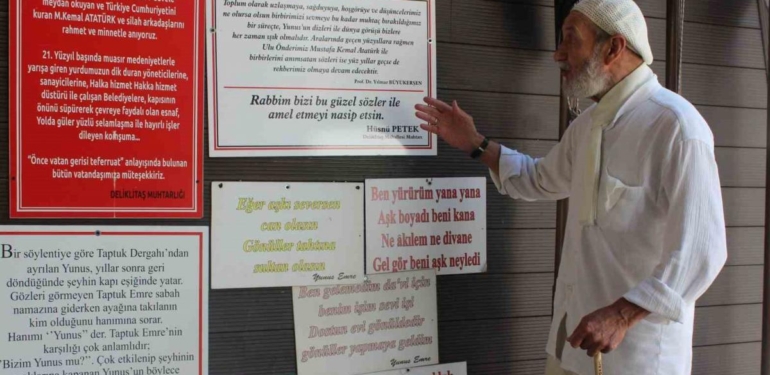 meydan okuyan ve Türkiye Cumhuriyetini
kuran M.Kemal ATATÜRK ve silah arkadaşlarını
rahmet ve minnetle anıyoruz.
21. Yüzyıl başında muasır medeniyetlerle
yarışa giren yurdumuzun dik duran yöneticilerine,
sanayicilerine, Halka hizmet Hakka hizmet
düstürü ile çalışan Belediyelere, kapısının
önünü süpürerek çevreye faydalı olan esnaf,
Yolda güler yüzlü selamlaşma ile hayırlı işler
dileyen komşuma...
"Önce vatan gerisi teferruat" anlayışında bulunan
bütün vatandaşımıza müteşekkiriz.
DELİKLİTAŞ MUHTARLIĞI
Toplum olarak uzlaşmaya, sağduyuya, hoşgörüye ve düşüncelerimiz
ne olursa olsun birbirimizi sevmeye bu kadar muhtaç bırakıldığımız
bir süreçte, Yunus'un dizleri ile dünya görüşü bizlere
her zaman ışık olmalıdır. Aralarında geçen yüzyıllara rağmen
Ulu Önderimiz Mustafa Kemal Atatürk ile
birbirlerini anımsatan sözleri ise yüz yıllar geçse de
rehberimiz olmaya devam edecektir.
Prof. Dr. Yılmaz BÜYÜKERŞEN
Rabbim bizi bu güzel sözler ile
amel etmeyi nasip etsin.
Hüsnü PETEK
Deliklitaş Mahallesi Muhtarı
Eğer aşkı seversen
can olasın
Gönüller tahtına
sultan olasın
Yunus Emre
Ben yürürüm yana yana
Aşk boyadı beni kana
Ne âkılem ne divane
Gel gör beni aşk neyledi
Ben gelmedim da'vi için
benim işim sevi için
Dostun evi gönüllerdir
gönüller yapmaya geldim
Yunus Emre
Bir söylentiye göre Taptuk Dergahı'ndan
ayrılan Yunus, yıllar sonra geri
döndüğünde şeyhin kapı eşiğinde yatar.
Gözleri görmeyen Taptuk Emre sabah
namazına giderken ayağına takılanın
kim olduğunu hanımına sorar.
Hanımı ''Yunus'' der. Taptuk Emre'nin
karşılığı çok anlamlıdır;
"Bizim Yunus mu?". Çok etkilenip şeyhinin
kapanan Yunus'un böylece